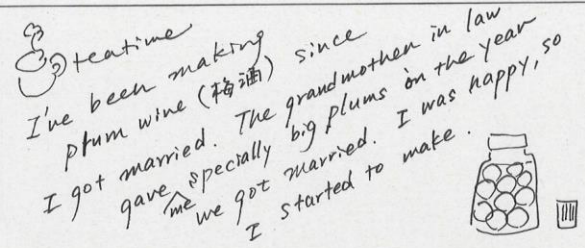 teatime
I've been making
plum wine (梅酒) since
I got married. The grandmother in law
gave me specially big plums on the year
we got married. I was happy, so
I started to make.